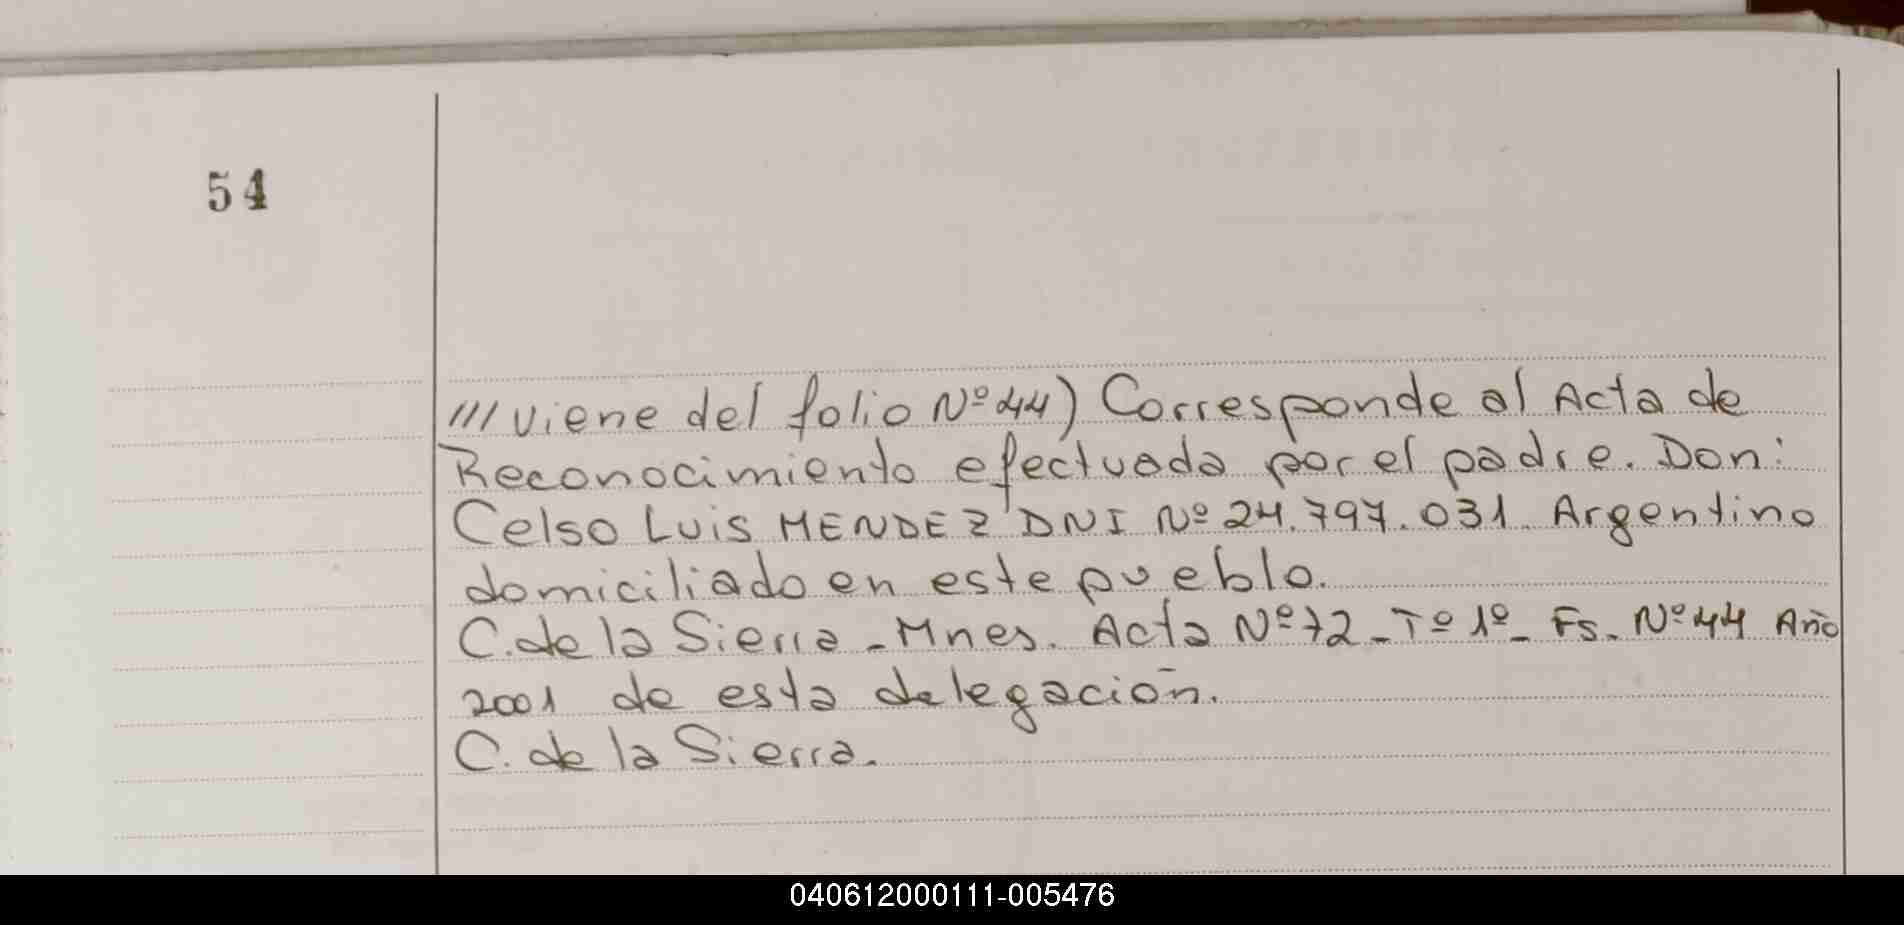 54
/// viene del folio Nº 44) Corresponde al Acta de
Reconocimiento efectuada por el padre. Don:
Celso Luis MENDEZ DNI Nº 24.797.031. Argentino
domiciliado en este pueblo.
C. de la Sierra - Mnes. Acta Nº 72 - Tº 1º - Fs. Nº 44 Año
2001 de esta delegación.
C. de la Sierra.
040612000111-005476